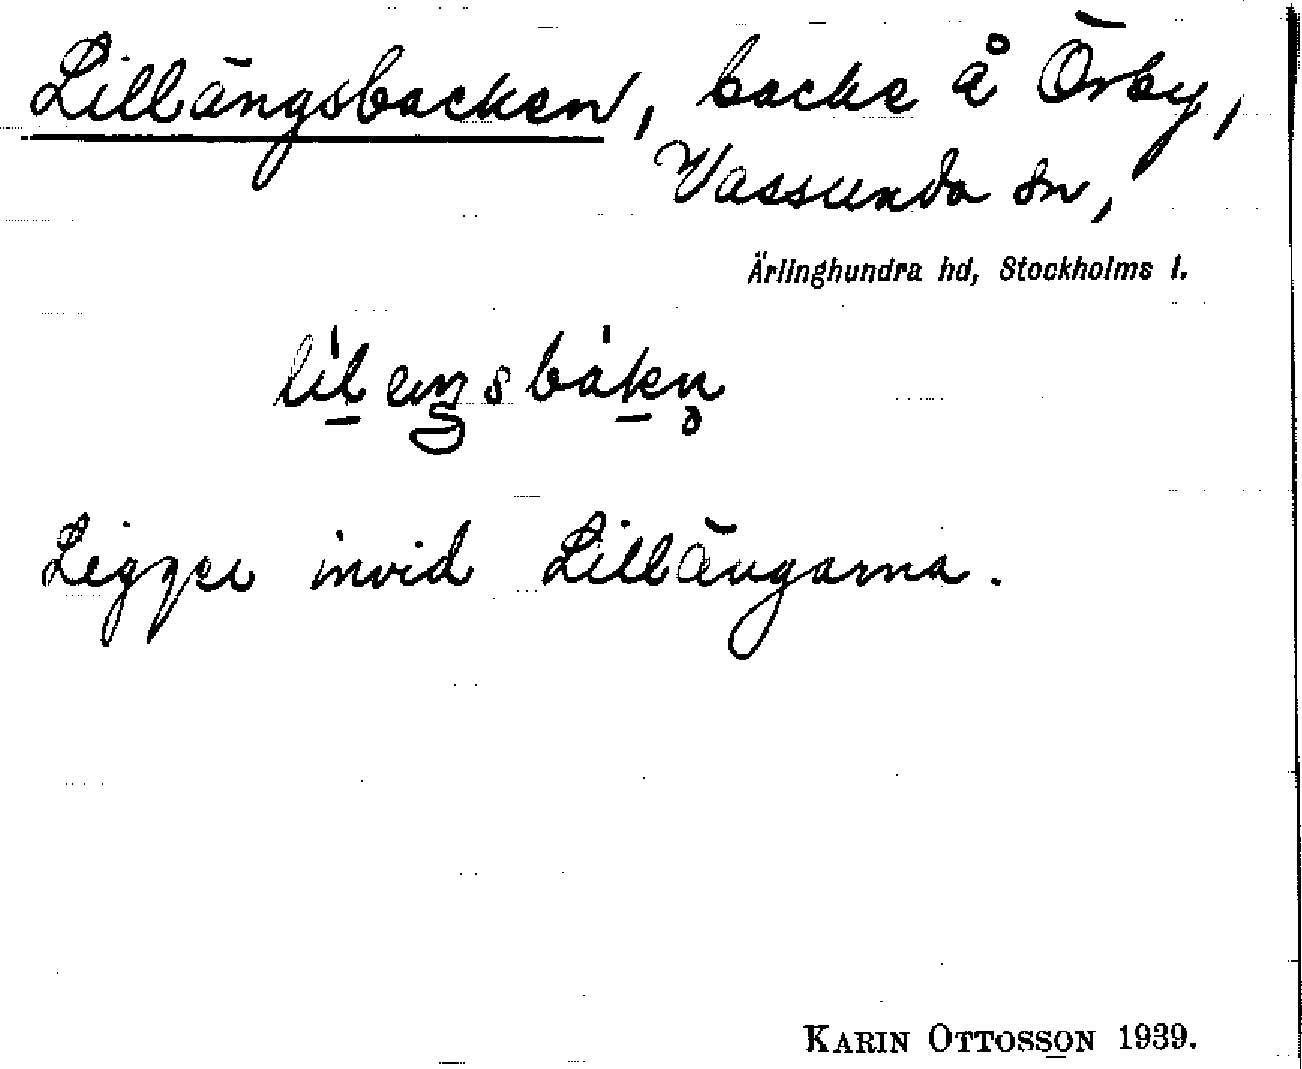 Lillängsbacken, backe å Örby,
Vassunda sn,
Ärlinghundra hd, Stockholms l.
Ligger invid Lillängarna.
KARIN OTTOSSON 1939.